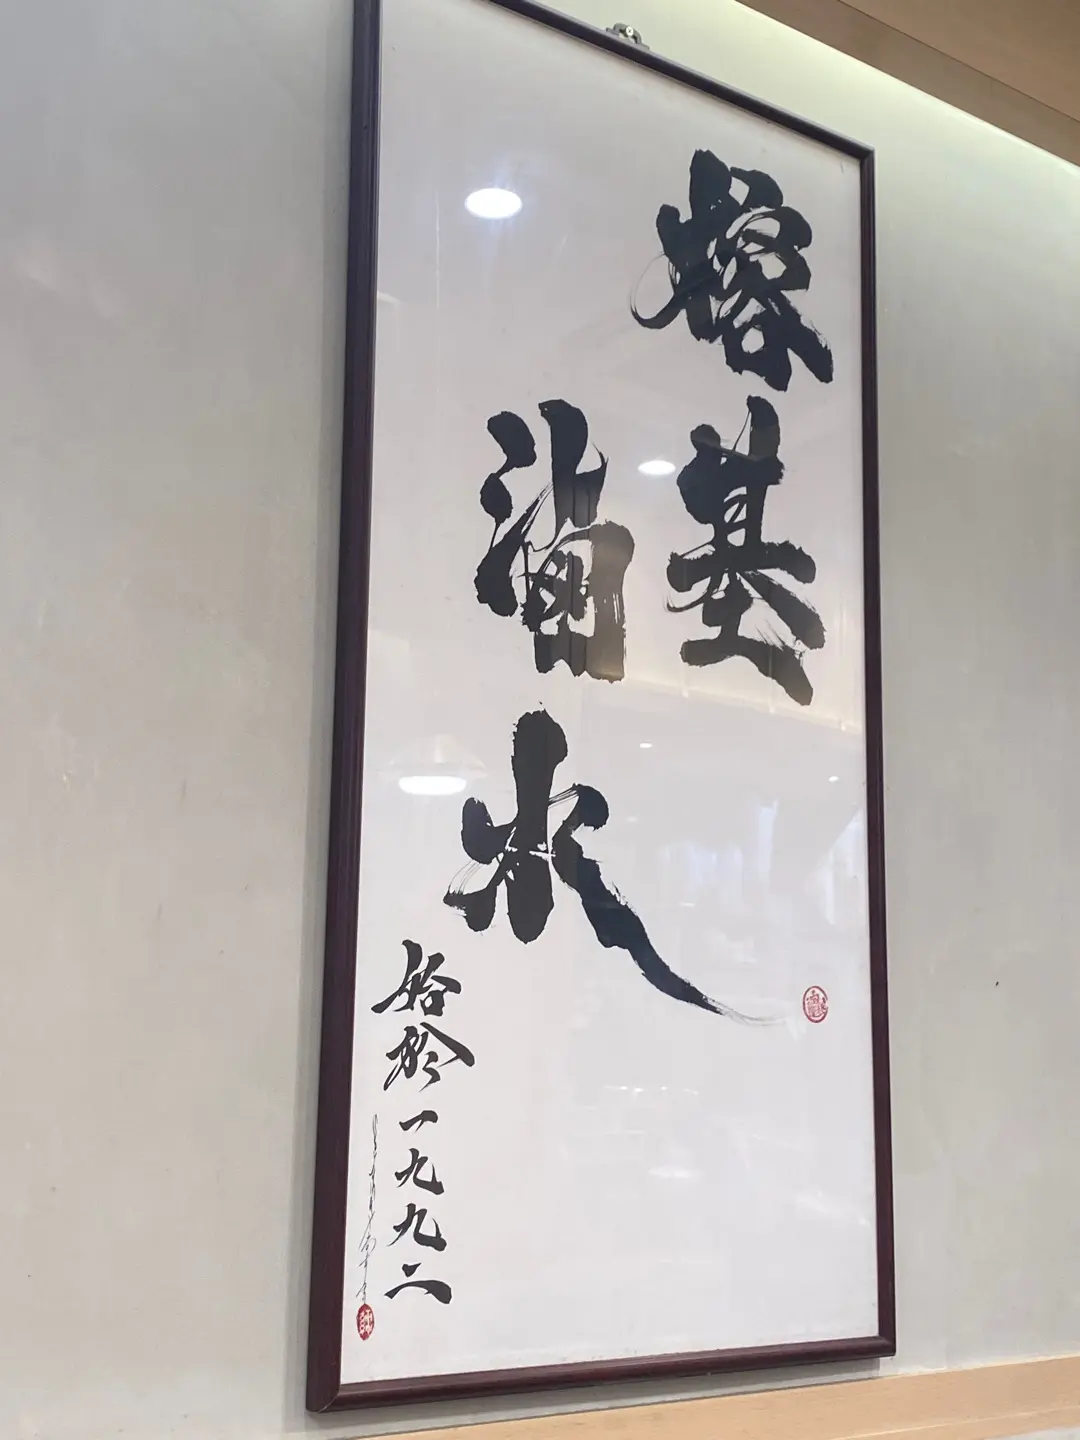 基
滷水
始於一九九二